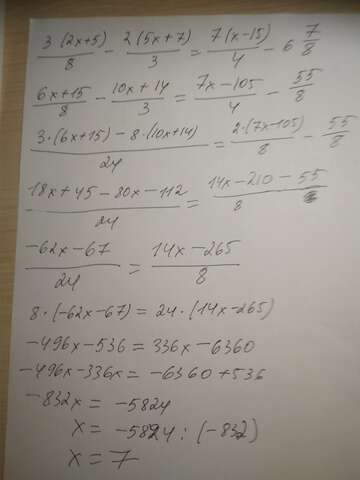 3·(2x+5)/8 - 2(5x+7)/3 = 7(x-15)/4 - 6 7/8
6x+15/8 - 10x+14/3 = 7x-105/4 - 55/8
3·(6x+15)-8·(10x+14)/24 = 2·(7x-105)/8 - 55/8
18x+45-80x-112/24 = 14x-210-55/8
-62x-67/24 = 14x-265/8
8·(-62x-67) = 24·(14x-265)
-496x-536 = 336x-6360
-496x-336x = -6360+536
-832x = -5824
x = -5824:(-832)
x = 7